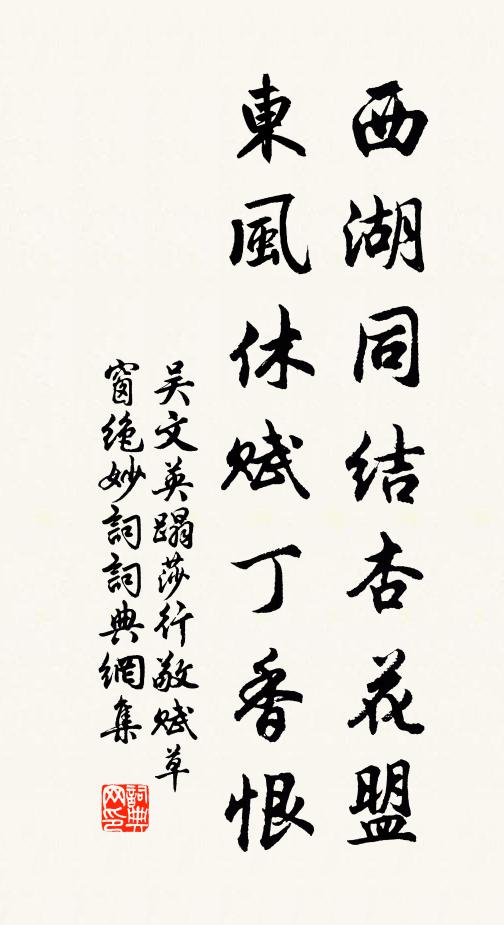 西湖同結杏花盟
東風休賦丁香恨
吳文英蹋莎行敬賦草
窗絶妙詞詞典網集
詞典网印